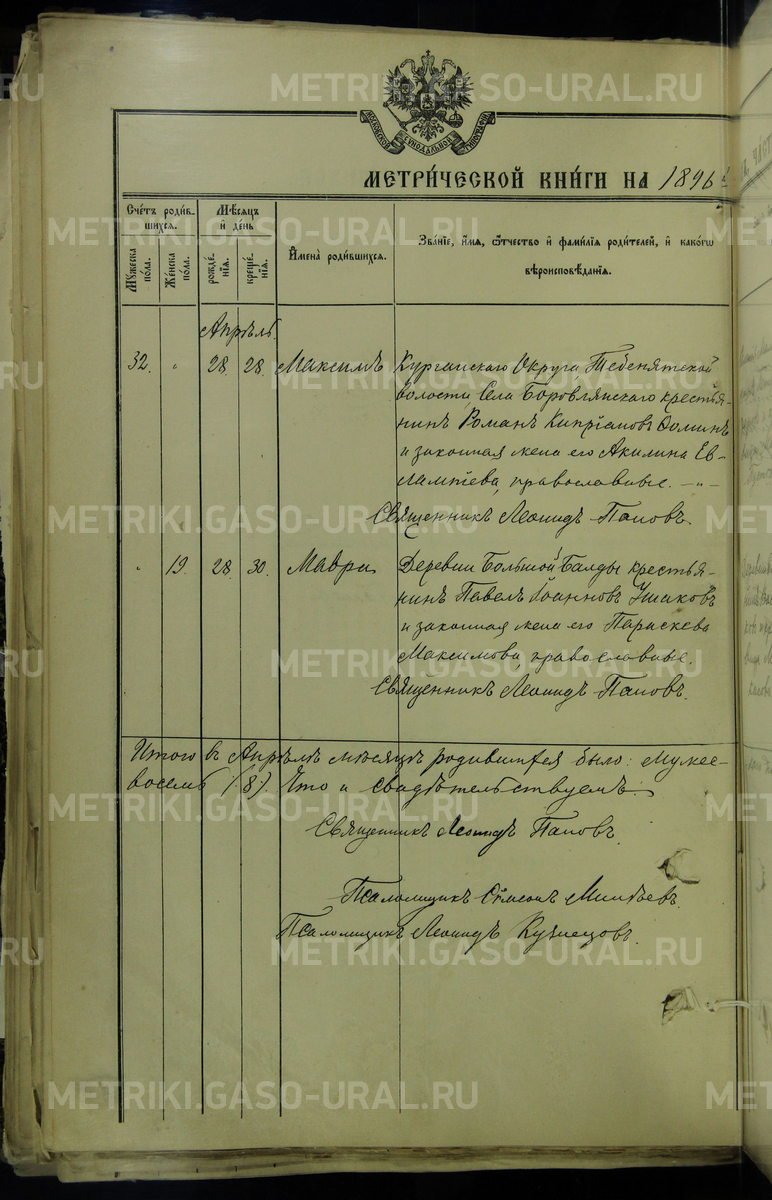 МОСКОВСКОЙ СѴНОДАЛЬНОЙ ТИПОГРАФІИ
МЕТРИ́ЧЕСКОЙ КНИ́ГИ НА 1896
Сче́тъ роди́в-
шихся.
Мѣ́сяцъ
и҆ де́нь
Мꙋ́жеска по́ла.
Же́нска по́ла.
рожде́нїя.
креще́нїя.
И҆мена̀ роди́вшихся.
Зва́нїе, и҆́мя, ѻ҆́тчество и҆ фами́лїя роди́телей, и҆ како́гѡ
вѣроисповѣ́данїя.
Апрѣль.
32. " 28. 28. Максимъ
Курганскаго Округа Тебенятской
волости Села Боровлянскаго крестья-
нинъ Романъ Кипріановъ Ѳоминъ
и законная жена его Акилина Ев-
лампіева, православные. - " -
Священникъ Леонидъ Поповъ.
" 19. 28. 30. Мавра
Деревни Большой Балды крестья-
нинъ Павелъ Іоанновъ Ушаковъ
и законная жена его Параскева
Максимова, православные.
Священникъ Леонидъ Поповъ.
Итого въ Апрѣлѣ мѣсяцѣ родившихся было: Мужес-
восемь (8). Что и свидѣтельствуемъ:
Священникъ Леонидъ Поповъ.
Псаломщикъ Сѵмеонъ
Псаломщикъ Леонидъ Кузнецовъ.
METRIKI.GASO-URAL.RU